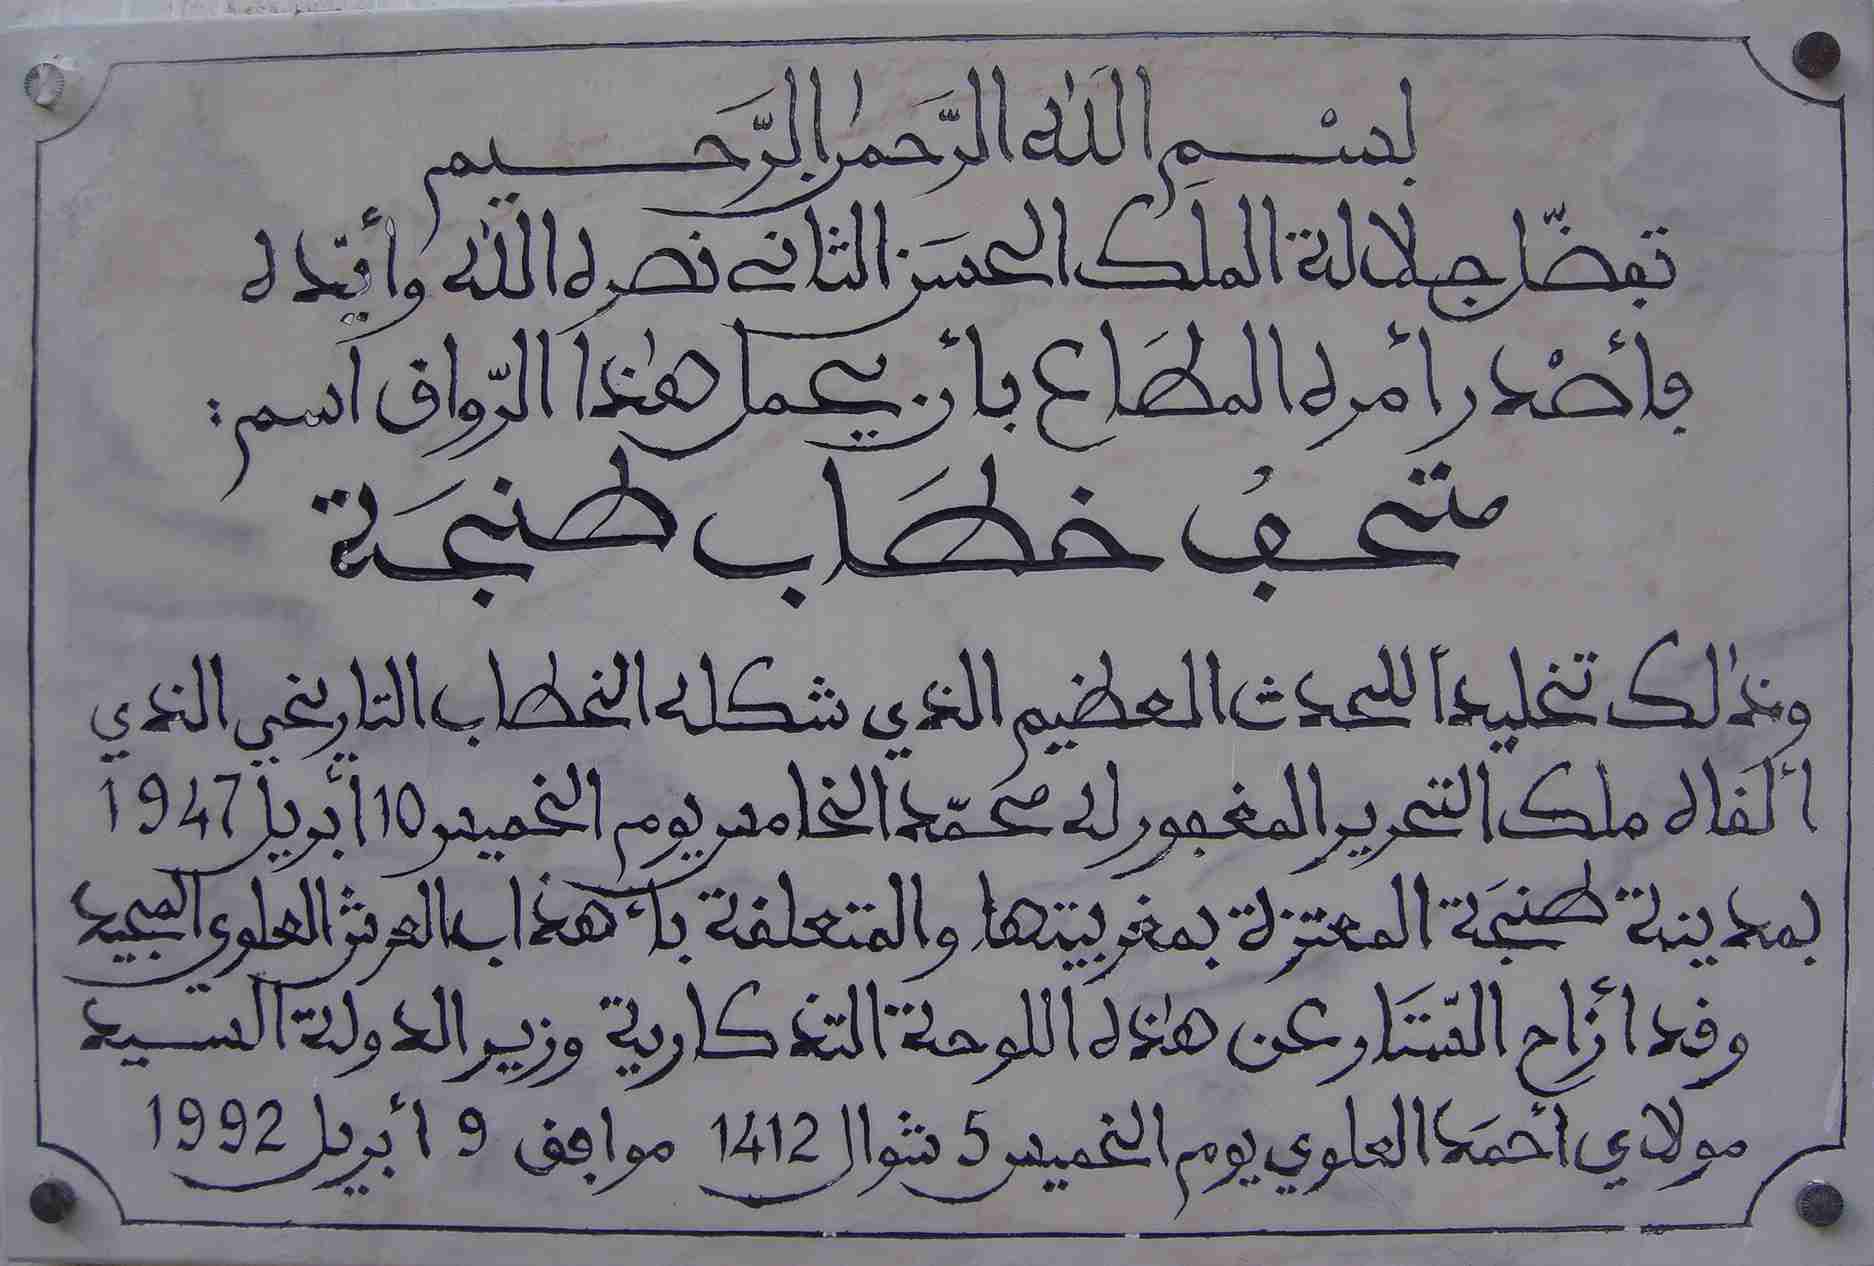 بسْمِ اللَّه الرَّحمٰن الرَّحيم
تفضّل جلالة الملك الحسَن الثاني نصره اللَّه وأيّده
فأصْدر أمره المطَاع بأن يحمل هٰذا الرّواق اسم:
متحفُ خطَاب طنجَة
وذٰلك تخليداً للحدث العظيم الذي شكله الخطاب التاريخي الذي
ألقاه ملك التحرير المغفور له محمّد الخامس يوم الخميس 10 أبريل 1947
بمدينة طنجَة المعتزة بمغربيتها والمتعلقة بأهذاب العرش العلوي المجيد
وقد أزاح السّتَار عن هٰذه اللوحة التذكارية وزير الدولة السيد
مولاي أحمَد العلوي يوم الخميس 5 شوال 1412 موافق 9 أبريل 1992